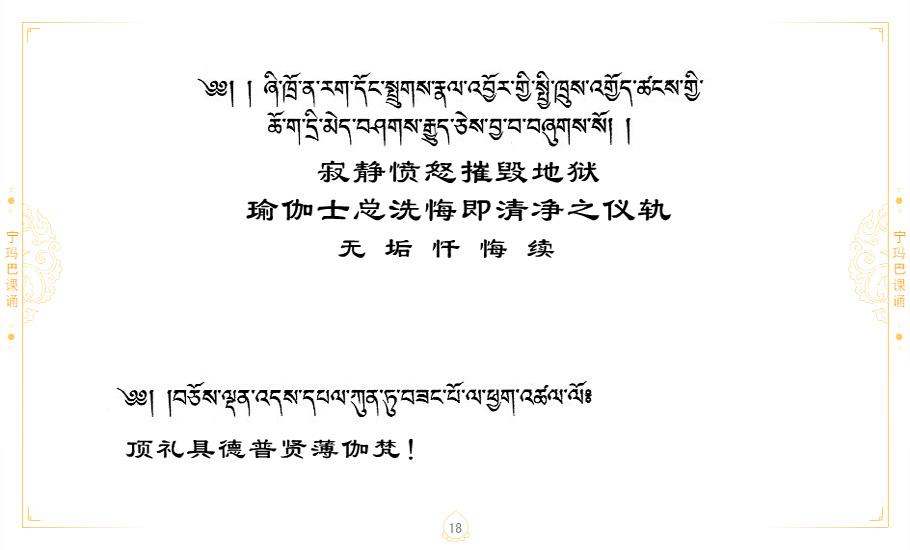 ༄༅། །ཞི་ཁྲོ་ན་རག་དོང་སྤྲུགས་རྣལ་འབྱོར་གྱི་སྤྱི་ཁྲུས་འགྱོད་ཚངས་ཀྱི་
ཆོ་ག་དྲི་མེད་བཤགས་རྒྱུད་ཅེས་བྱ་བ་བཞུགས་སོ། །
寂静愤怒摧毁地狱
瑜伽士总洗悔即清净之仪轨
无 垢 忏 悔 续
宁玛巴课诵
宁玛巴课诵
༄༅། །བཅོམ་ལྡན་འདས་དཔལ་ཀུན་ཏུ་བཟང་པོ་ལ་ཕྱག་འཚལ་ལོ༔
顶礼具德普贤薄伽梵！
18